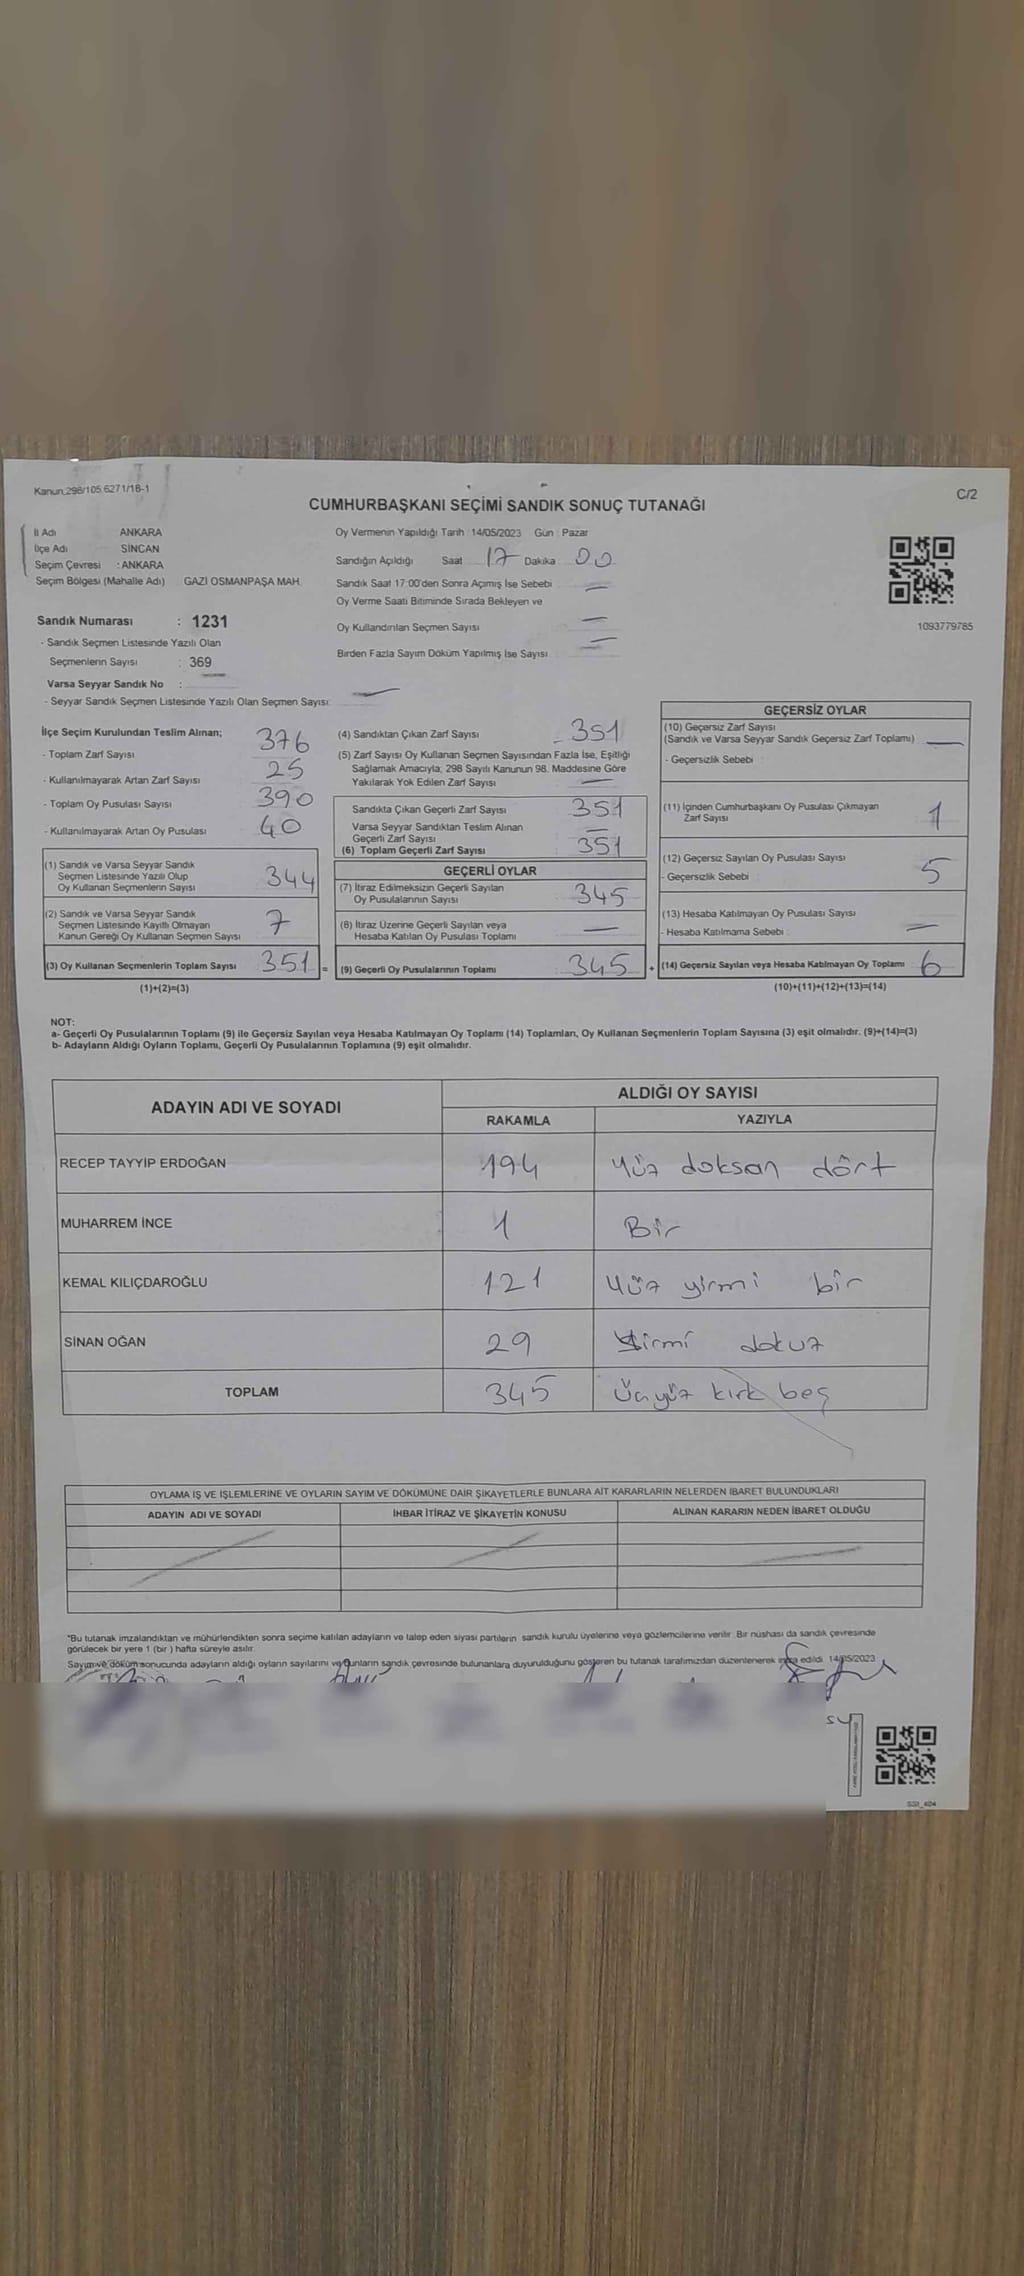 Kanun:298/105,6271/18-1
C/2
CUMHURBAŞKANI SEÇİMİ SANDIK SONUÇ TUTANAĞI
İl Adı ANKARA
İlçe Adı SİNCAN
Seçim Çevresi : ANKARA
Seçim Bölgesi (Mahalle Adı) : GAZİ OSMANPAŞA MAH.
Sandık Numarası : 1231
- Sandık Seçmen Listesinde Yazılı Olan
Seçmenlerin Sayısı : 369
Varsa Seyyar Sandık No :
- Seyyar Sandık Seçmen Listesinde Yazılı Olan Seçmen Sayısı:
Oy Vermenin Yapıldığı Tarih : 14/05/2023 Gün : Pazar
Sandığın Açıldığı Saat 17 Dakika 00
Sandık Saat 17:00'den Sonra Açımış İse Sebebi
Oy Verme Saati Bitiminde Sırada Bekleyen ve
Oy Kullandırılan Seçmen Sayısı
Birden Fazla Sayım Döküm Yapılmış İse Sayısı
1093779785
İlçe Seçim Kurulundan Teslim Alınan;
- Toplam Zarf Sayısı 376
- Kullanılmayarak Artan Zarf Sayısı 25
- Toplam Oy Pusulası Sayısı 390
- Kullanılmayarak Artan Oy Pusulası 40
(1) Sandık ve Varsa Seyyar Sandık
Seçmen Listesinde Yazılı Olup
Oy Kullanan Seçmenlerin Sayısı 344
(2) Sandık ve Varsa Seyyar Sandık
Seçmen Listesinde Kayıtlı Olmayan
Kanun Gereği Oy Kullanan Seçmen Sayısı 7
(3) Oy Kullanan Seçmenlerin Toplam Sayısı 351 =
(1)+(2)=(3)
(4) Sandıktan Çıkan Zarf Sayısı 351
(5) Zarf Sayısı Oy Kullanan Seçmen Sayısından Fazla İse, Eşitliği
Sağlamak Amacıyla, 298 Sayılı Kanunun 98. Maddesine Göre
Yakılarak Yok Edilen Zarf Sayısı
Sandıkta Çıkan Geçerli Zarf Sayısı 351
Varsa Seyyar Sandıktan Teslim Alınan
Geçerli Zarf Sayısı
(6) Toplam Geçerli Zarf Sayısı 351
GEÇERLİ OYLAR
(7) İtiraz Edilmeksizin Geçerli Sayılan
Oy Pusulalarının Sayısı 345
(8) İtiraz Üzerine Geçerli Sayılan veya
Hesaba Katılan Oy Pusulası Toplamı
(9) Geçerli Oy Pusulalarının Toplamı 345 +
GEÇERSİZ OYLAR
(10) Geçersiz Zarf Sayısı
(Sandık ve Varsa Seyyar Sandık Geçersiz Zarf Toplamı)
- Geçersizlik Sebebi
(11) İçinden Cumhurbaşkanı Oy Pusulası Çıkmayan
Zarf Sayısı 1
(12) Geçersiz Sayılan Oy Pusulası Sayısı
- Geçersizlik Sebebi : 5
(13) Hesaba Katılmayan Oy Pusulası Sayısı
- Hesaba Katılmama Sebebi :
(14) Geçersiz Sayılan veya Hesaba Katılmayan Oy Toplamı 6
(10)+(11)+(12)+(13)=(14)
NOT:
a- Geçerli Oy Pusulalarının Toplamı (9) ile Geçersiz Sayılan veya Hesaba Katılmayan Oy Toplamı (14) Toplamları, Oy Kullanan Seçmenlerin Toplam Sayısına (3) eşit olmalıdır. (9)+(14)=(3)
b- Adayların Aldığı Oyların Toplamı, Geçerli Oy Pusulalarının Toplamına (9) eşit olmalıdır.
ADAYIN ADI VE SOYADI
ALDIĞI OY SAYISI
RAKAMLA YAZIYLA
RECEP TAYYİP ERDOĞAN 194 Yüz doksan dört
MUHARREM İNCE 1 Bir
KEMAL KILIÇDAROĞLU 121 Yüz yirmi bir
SİNAN OĞAN 29 Yirmi dokuz
TOPLAM 345 Üçyüz kırk beş
OYLAMA İŞ VE İŞLEMLERİNE VE OYLARIN SAYIM VE DÖKÜMÜNE DAİR ŞİKAYETLERLE BUNLARA AİT KARARLARIN NELERDEN İBARET BULUNDUKLARI
ADAYIN ADI VE SOYADI İHBAR İTİRAZ VE ŞİKAYETİN KONUSU ALINAN KARARIN NEDEN İBARET OLDUĞU
*Bu tutanak imzalandıktan ve mühürlendikten sonra seçime katılan adayların ve talep eden siyasi partilerin sandık kurulu üyelerine veya gözlemcilerine verilir. Bir nüshası da sandık çevresinde
görülecek bir yere 1 (bir ) hafta süreyle asılır.
Sayım ve döküm sonucunda adayların aldığı oyların sayılarını ve bunların sandık çevresinde bulunanlara duyurulduğunu gösteren bu tutanak tarafımızdan düzenlenerek imza edildi. 14/05/2023